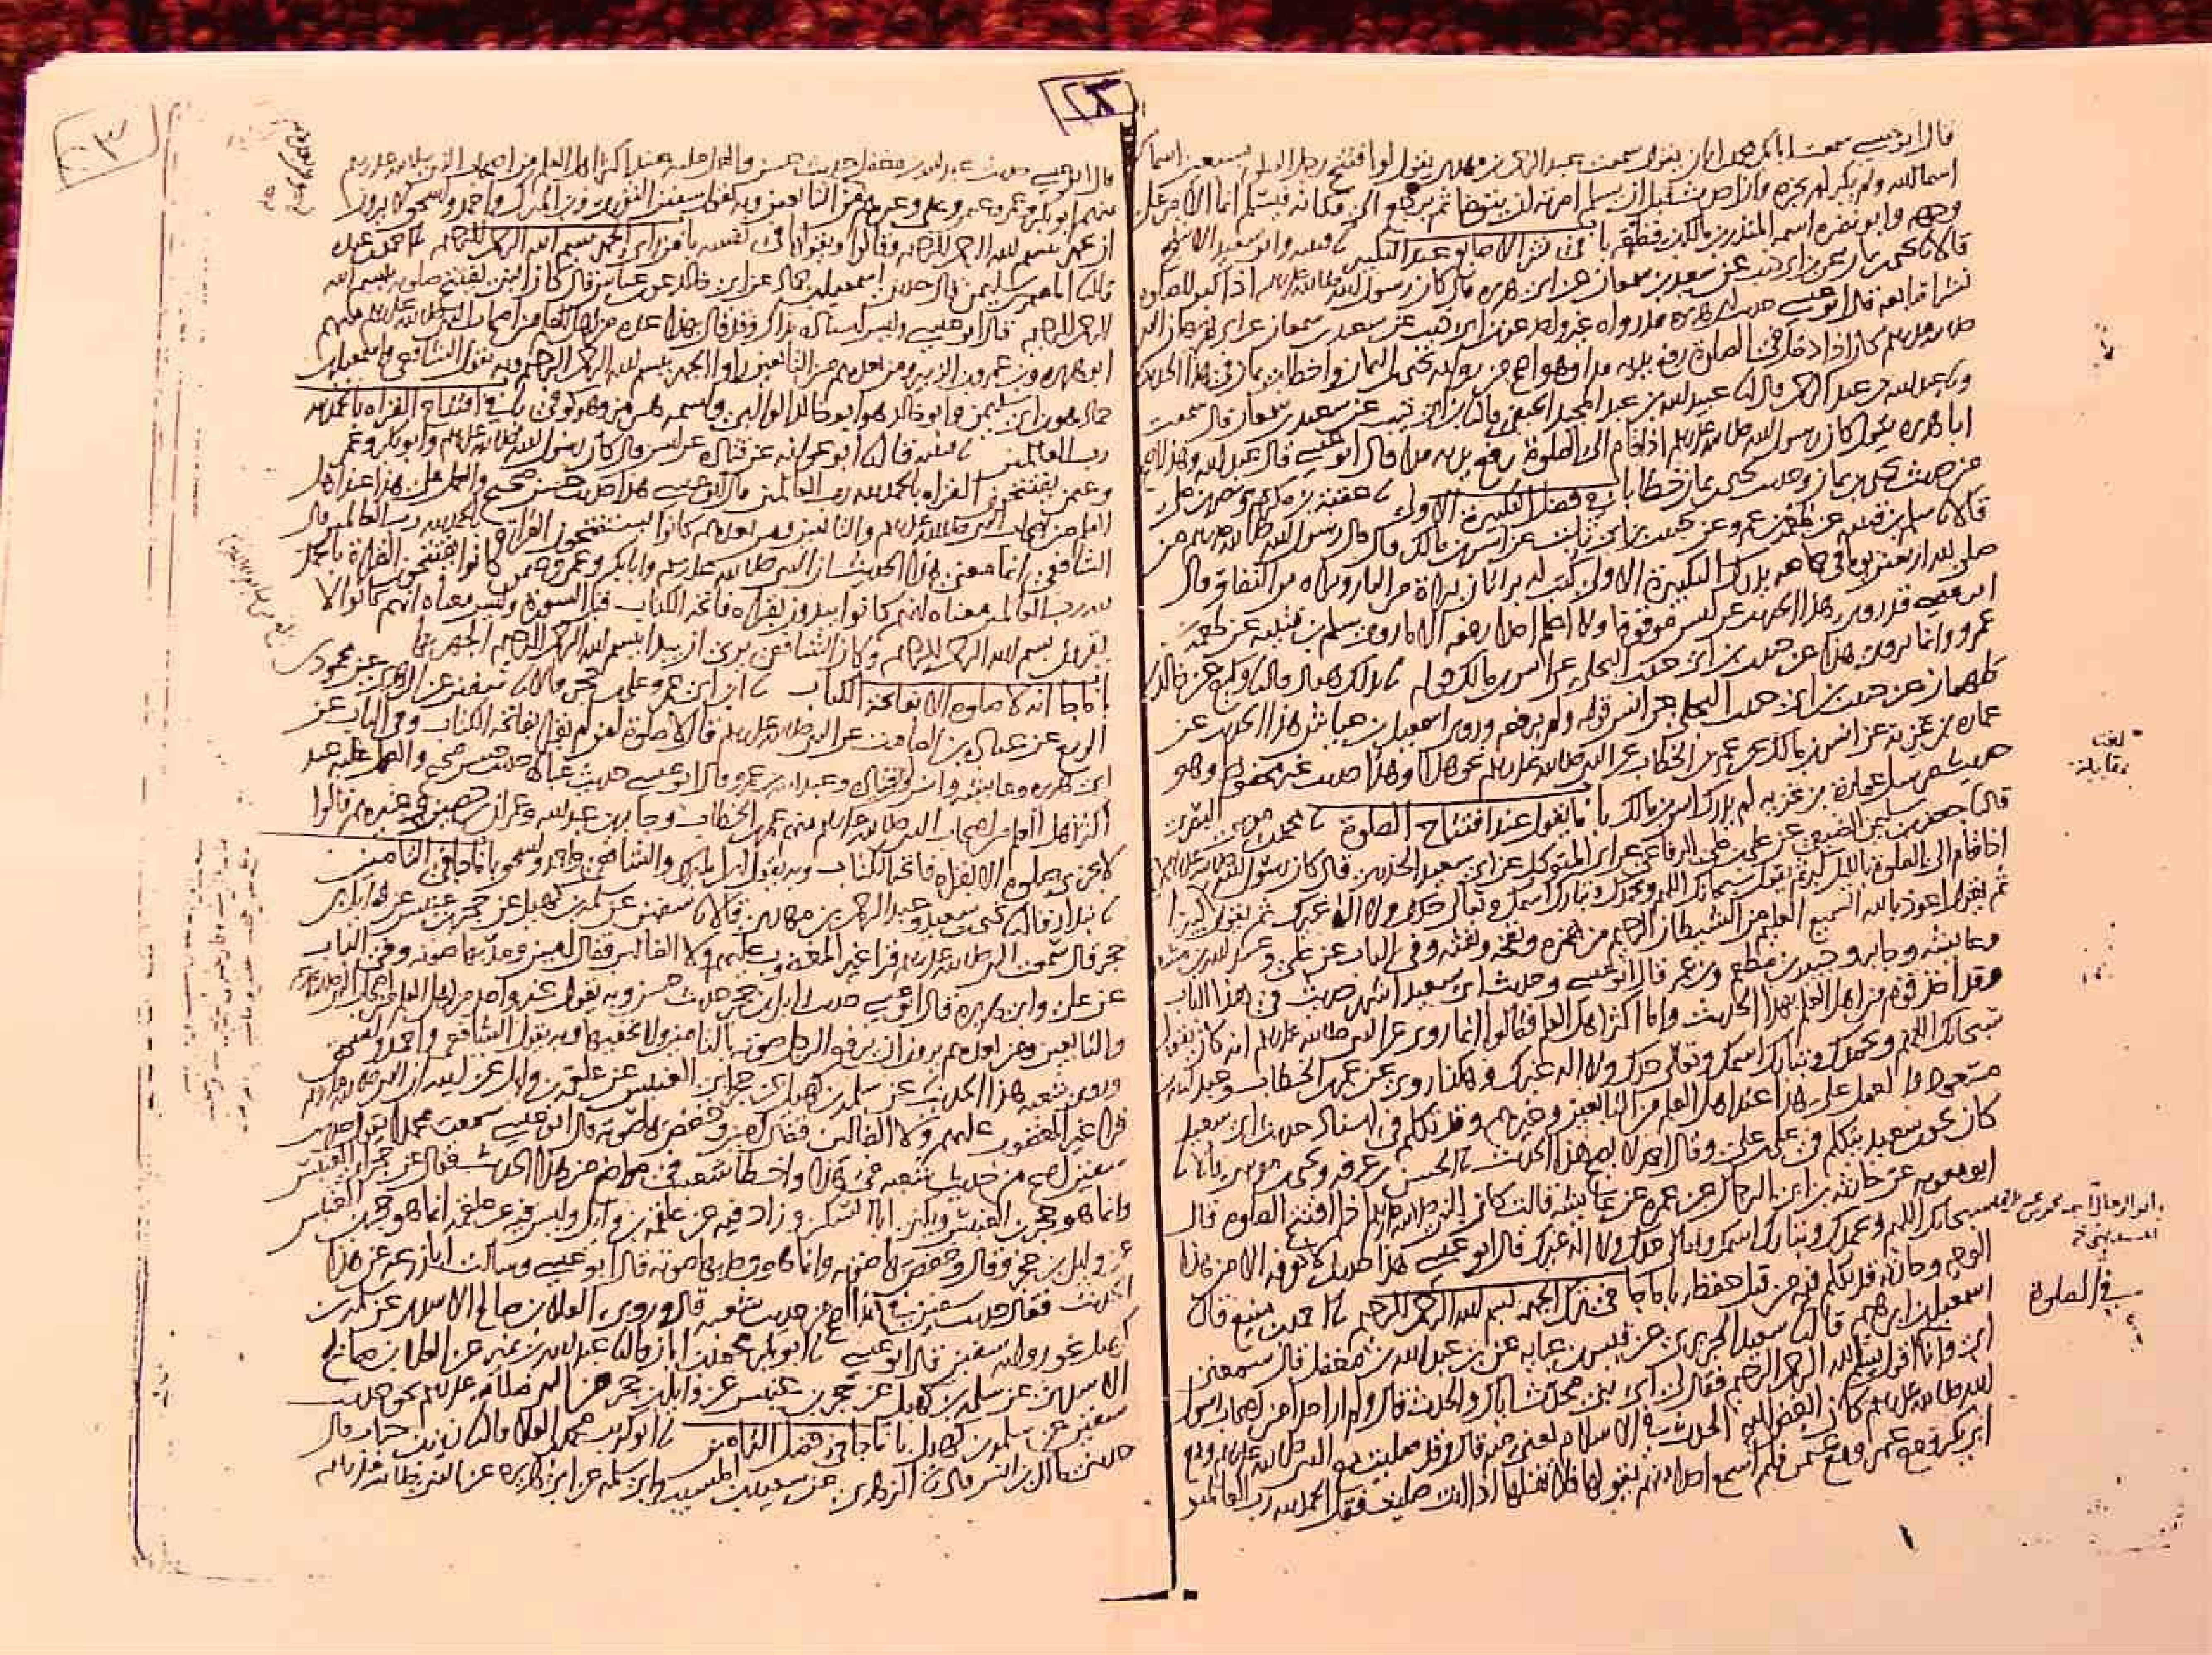 قال ابو عيسى سمعت ابا بكر محمد بن ابان يقول سمعت عبد الرحمن بن مهدي يقول لو افتتح رجل الصلوة بسبعين اسما من
اسما الله ولم يكبر لم يجزه وان احدث قبل ان يسلم امرته ان يتوضا ثم يرجع الى مكانه فيسلم انما الامر على
وجهه وابو نضره اسمه المنذر بن مالك بن قطعه باب في نشر الاصابع عند التكبير قتيبه وابو سعيد الاشج
قالا نا يحيى بن يمان عن ابن ابي ذيب عن سعيد بن سمعان عن ابي هريره قال كان رسول الله صلى الله عليه وسلم اذا كبر للصلوه
نشر اصابعه قال ابو عيسى حديث ابي هريره قد رواه غير واحد عن ابن ابي ذيب عن سعيد بن سمعان عن ابي هريره ان النبي
صلى الله عليه وسلم كان اذا دخل في الصلوة رفع يديه مدا وهو اصح من روايه يحيى بن اليمان واخطا ابن يمان في هذا الحديث
عبد الله بن عبد الرحمن قال نا عبيد الله بن عبد المجيد الحنفي قال نا ابن ابي ذيب عن سعيد بن سمعان قال سمعت
ابا هريره يقول كان رسول الله صلى الله عليه وسلم اذا قام الى الصلوة رفع يديه مدا قال ابو عيسى قال عبد الله وهذا اصح
من حديث يحيى بن يمان وحديث يحيى بن يمان خطا باب في فضل التكبيرة الاولى عقبة بن مكرم ونصر بن علي
قالا نا سلم بن قتيبه عن طعمه بن عمرو عن حبيب بن ابي ثابت عن انس بن مالك قال قال رسول الله صلى الله عليه وسلم من
صلى لله اربعين يوما في جماعه يدرك التكبيرة الاولى كتب له براتان براة من النار وبراه من النفاق قال
ابو عيسى قد روي هذا الحديث عن انس موقوفا ولا اعلم احدا رفعه الا ما روى سلم بن قتيبه عن طعمه بن
عمرو وانما يروى هذا عن حبيب بن ابي حبيب البجلي عن انس بن مالك قوله بذلك هناد قال نا وكيع عن خالد بن
طهمان عن حبيب بن ابي حبيب البجلي عن انس قوله ولم يرفعه وروى اسمعيل بن عياش هذا الحديث عن
عماره بن غزيه عن انس بن مالك عن عمر بن الخطاب عن النبي صلى الله عليه وسلم نحو هذا وهذا حديث غير محفوظ وهو
حديث مرسل عمارة بن غزيه لم يدرك انس بن مالك باب ما يقول عند افتتاح الصلوة محمد بن موسى البصري
قال نا جعفر بن سليمن الضبعي عن علي بن علي الرفاعي عن ابي المتوكل عن ابي سعيد الخدري قال كان رسول الله صلى الله عليه وسلم
اذا قام الى الصلوة بالليل كبر ثم يقول سبحانك اللهم وبحمدك وتبارك اسمك وتعالى جدك ولا اله غيرك ثم يقول الله اكبر كبيرا
ثم يقول اعوذ بالله السميع العليم من الشيطان الرجيم من همزه ونفخه ونفثه وفي الباب عن علي وعبد الله بن مسعود
وعايشه وجابر وجبير بن مطعم وابن عمر قال ابو عيسى وحديث ابي سعيد اشهر حديث في هذا الباب
وقد اخذ قوم من اهل العلم بهذا الحديث واما اكثر اهل العلم فقالوا انما روي عن النبي صلى الله عليه وسلم انه كان يقول
سبحانك اللهم وبحمدك وتبارك اسمك وتعالى جدك ولا اله غيرك وهكذا روي عن عمر بن الخطاب وعبد الله بن
مسعود والعمل على هذا عند اهل العلم من التابعين وغيرهم وقد تكلم في اسناد حديث ابي سعيد
كان يحيى بن سعيد يتكلم في علي بن علي وقال احمد لا يصح هذا الحديث الحسن بن عرفه ويحيى بن موسى قالا نا
ابو معويه عن حارثه بن ابي الرجال عن عمره عن عايشه قالت كان النبي صلى الله عليه وسلم اذا افتتح الصلوه قال
سبحانك اللهم وبحمدك وتبارك اسمك وتعالى جدك ولا اله غيرك قال ابو عيسى هذا حديث لا نعرفه الا من هذا
الوجه وحارثه قد تكلم فيه من قبل حفظه باب ما جا في ترك الجهر ببسم الله الرحمن الرحيم احمد بن منيع قال
اسمعيل بن ابرهيم قال نا سعيد الجريري عن قيس بن عبايه عن ابن عبد الله بن مغفل قال سمعني
ابي وانا اقول بسم الله الرحمن الرحيم فقال لي اي بني محدث اياك والحدث قال ولم ار احدا من اصحاب رسول
الله صلى الله عليه وسلم كان ابغض اليه الحدث في الاسلام يعني منه قال وقد صليت مع النبي صلى الله عليه وسلم ومع
ابي بكر ومع عمر ومع عثمن فلم اسمع احدا منهم يقولها فلا تقلها اذا انت صليت فقل الحمد لله رب العالمين
بلغت
مقابلة
في الصلوة
٢٣
قال ابو عيسى حديث عبد الله بن مغفل حديث حسن والعمل عليه عند اكثر اهل العلم من اصحاب النبي صلى الله عليه وسلم
منهم ابو بكر وعمر وعثمن وعلي وغيرهم ومن بعدهم من التابعين وبه يقول سفين الثوري وابن المبرك واحمد واسحق لا يرون
ان يجهر ببسم الله الرحمن الرحيم وقالوا ويقولها في نفسه باب من راى الجهر ببسم الله الرحمن الرحيم احمد بن عبده
قال نا المعتمر بن سليمن قال حدثني اسمعيل بن حماد عن ابي خالد عن ابن عباس قال كان النبي يفتتح صلوته ببسم الله
الرحمن الرحيم قال ابو عيسى وليس اسناده بذاك وقد قال بهذا عده من اهل العلم من اصحاب النبي صلى الله عليه وسلم منهم
ابو هريره وابن عمر وابن الزبير ومن بعدهم من التابعين راوا الجهر ببسم الله الرحمن الرحيم وبه يقول الشافعي واسمعيل بن
حماد هو ابن ابي سليمن وابو خالد هو ابو خالد الوالبي واسمه هرمز وهو كوفي باب في افتتاح القراه بالحمد لله
رب العالمين قتيبه قال نا ابو عوانه عن قتاده عن انس قال كان رسول الله صلى الله عليه وسلم وابو بكر وعمر
وعثمن يفتتحون القراه بالحمد لله رب العالمين قال ابو عيسى هذا حديث حسن صحيح والعمل على هذا عند اهل
العلم من اصحاب النبي صلى الله عليه وسلم والتابعين ومن بعدهم كانوا يستفتحون القراة بالحمد لله رب العالمين قال
الشافعي انما معنى هذا الحديث ان النبي صلى الله عليه وسلم وابا بكر وعمر وعثمن كانوا يفتتحون القراة بالحمد
لله رب العالمين معناه انهم كانوا يبدون بقراه فاتحه الكتاب قبل السورة وليس معناه انهم كانوا لا
يقرون بسم الله الرحمن الرحيم وكان الشافعي يرى ان يبدا ببسم الله الرحمن الرحيم
باب ما جا انه لا صلوه الا بفاتحه الكتاب ابن ابي عمر وعلي بن حجر قالا نا سفين عن الزهري عن محمود بن
الربيع عن عباده بن الصامت عن النبي صلى الله عليه وسلم قال لا صلوة لمن لم يقرا بفاتحه الكتاب وفي الباب عن
ابي هريره وعايشه وانس وابي قتاده وعبد الله بن عمرو قال ابو عيسى حديث عباده حديث حسن صحيح والعمل عليه عند
اكثر اهل العلم من اصحاب النبي صلى الله عليه وسلم منهم عمر بن الخطاب وجابر بن عبد الله وعمران بن حصين وغيرهم قالوا
لا تجزي صلوه الا بقراه فاتحه الكتاب وبه يقول ابن المبرك والشافعي واحمد واسحق باب ما جا في التامين
بندار قال نا يحيى بن سعيد وعبد الرحمن بن مهدي قالا نا سفين عن سلمه بن كهيل عن حجر بن عنبس عن وايل بن
حجر قال سمعت النبي صلى الله عليه وسلم قرا غير المغضوب عليهم ولا الضالين فقال امين ومد بها صوته وفي الباب
عن علي وابي هريره قال ابو عيسى حديث وايل بن حجر حديث حسن وبه يقول غير واحد من اهل العلم من اصحاب النبي صلى الله عليه وسلم
والتابعين ومن بعدهم يرون ان يرفع الرجل صوته بالتامين ولا يخفيها وبه يقول الشافعي واحمد واسحق
وروى شعبه هذا الحديث عن سلمه بن كهيل عن حجر ابي العنبس عن علقمه بن وايل عن ابيه ان النبي صلى الله عليه وسلم
قرا غير المغضوب عليهم ولا الضالين فقال امين وخفض بها صوته قال ابو عيسى سمعت محمدا يقول حديث
سفين اصح من حديث شعبه في هذا واخطا شعبه في مواضع من هذا الحديث فقال عن حجر ابي العنبس
وانما هو حجر بن العنبس ويكنى ابا السكن وزاد فيه عن علقمه بن وايل وليس فيه عن علقمه انما هو حجر بن العنبس
عن وايل بن حجر وقال وخفض بها صوته وانما هو ومد بها صوته قال ابو عيسى وسالت ابا زرعه عن هذا
الحديث فقال حديث سفين في هذا اصح من حديث شعبه قال وروى العلا بن صالح الاسدي عن سلمه بن
كهيل نحو روايه سفين قال ابو عيسى ابو بكر محمد بن ابان قال نا عبد الله بن نمير عن العلا بن صالح
الاسدي عن سلمه بن كهيل عن حجر بن عنبس عن وايل بن حجر عن النبي صلى الله عليه وسلم نحو حديث
سفين عن سلمه بن كهيل باب ما جا في فضل التامين ابو كريب محمد بن العلا قال نا زيد بن حباب قال
حدثني مالك بن انس قال نا الزهري عن سعيد بن المسيب وابي سلمه عن ابي هريره عن النبي صلى الله عليه وسلم
٢٣